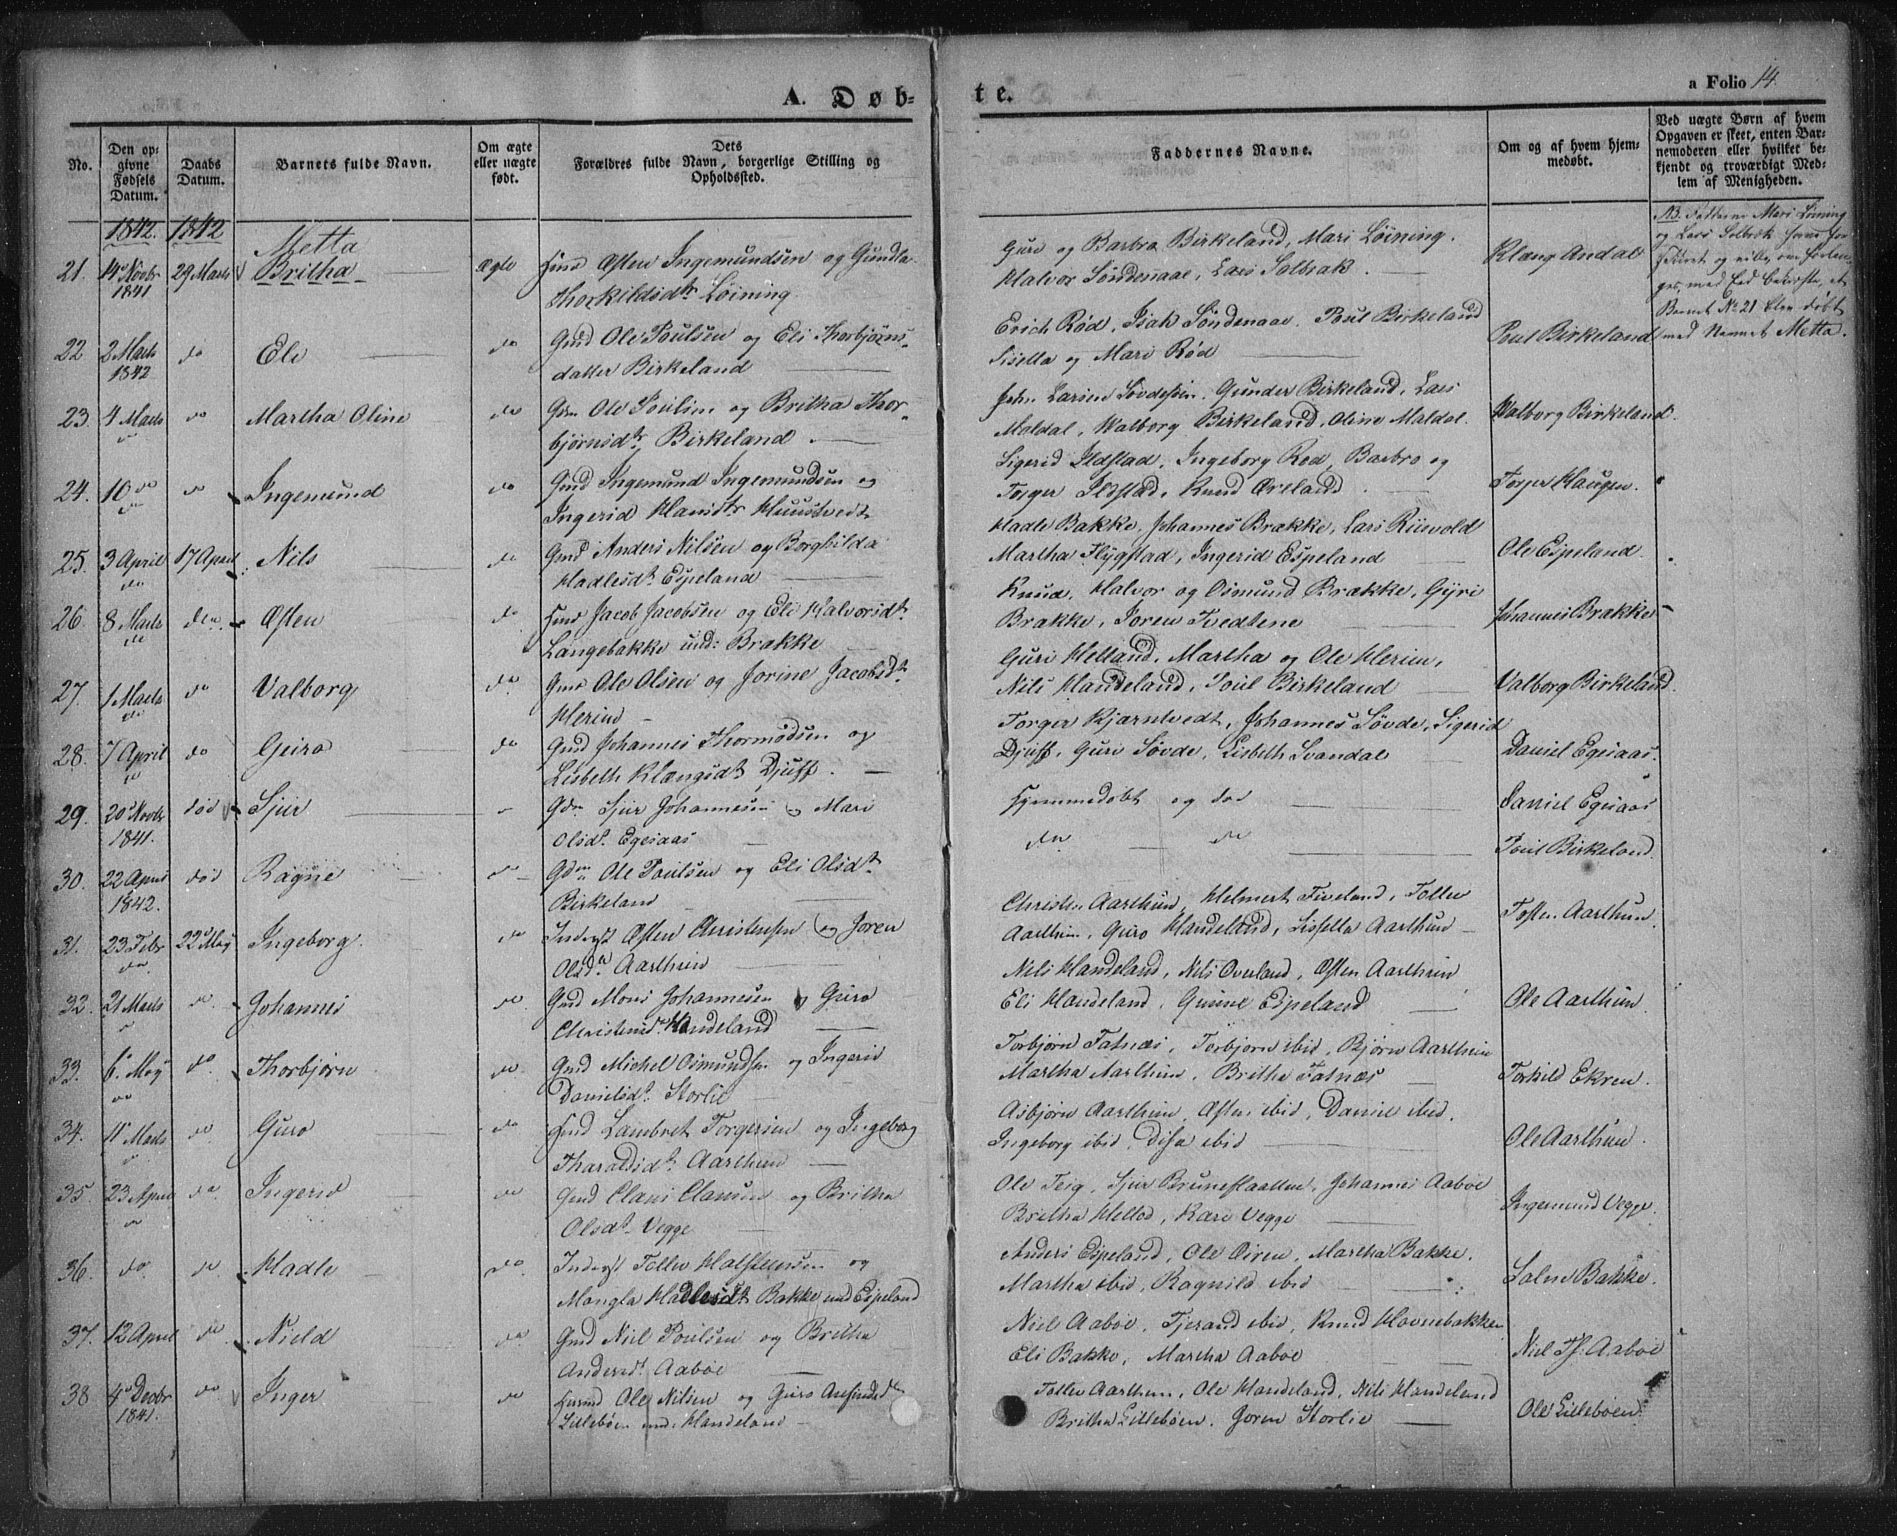 A. Døb- te. a Folio 14.
No. | Den opgivne Fødsels Datum. | Daabs Datum. | Barnets fulde Navn. | Om ægte eller uægte født. | Dets Forældres fulde Navn, borgerlige Stilling og Opholdssted. | Faddernes Navne. | Om og af hvem hjemmedøbt. | Ved uægte Børn af hvem Opgaven er skeet, enten Barnemoderen eller hvilket bekjendt og troværdigt Medlem af Menigheden.
1842. 1842
Metta
21. 14 Novbr 1841 29 Marts Britha Ægte Østen Ingemundsen og Gundla
Thorkildsdtr Løining
Guro og Barbro Birkeland, Mari Løining.
Halvor Søndenaae, Lars Solbak
Klæng Andal
NB. Fadderne Mari Løining
og Lars Solbak have for
med Eed bekræfte, at
Barnet No 21 blev døbt
med Navnet Metta.
22 2 Marts 1842 do Eli do Gmd Ole Poulsen og Eli Thorbjørns-
datter Birkeland
Erich Rød, Isak Søndenaae, Poul Birkeland
Sisella og Mari Rød
Poul Birkeland
23. 4 Marts do do Martha Oline do Gdm Ole Poulsen og Britha Thor-
bjørnsdtr Birkeland
John Larsen Søvdesøen, Gunder Birkeland, Lars
Maldal, Walborg Birkeland, Oline Maldal.
Walborg Birkeland.
24. 10 do do do Ingemund do Gmd Ingemund Ingemundsen og
Ingerid Hansdtr Huustvedt
Sigerid Ildstad, Ingeborg Rød, Barbro og
Torger Ildstad, Knud Øreland
Torger Haugen.
25. 3 April do 17 April Nils do Gmd Anders Nilsen og Borghilda
Hadlesdt. Espeland
Hadle Bakke, Johannes Brække, Lars Riisvold
Martha Flygstad, Ingerid Espeland
Ole Espeland.
26. 8 Marts do den Østen do Jacob Jacobsen og Eli Halvorsdt.
Langebakke und: Brække
Knud, Halvor og Osmund Brække, Gyri
Brække, Joren Tvedtene
Johannes Brække
27. 1 Marts do do Valborg do Gmd Ole Olsen og Jorine Jacobsdt.
Herim
Guri Helland, Martha og Ole Herim,
Nils Handeland, Poul Birkeland
Valborg Birkeland.
28. 7 April do do Geiro do Gmd Johannes Thormodsen og
Lisbeth Klængsdt Djuff.
Torger Bjørntvedt, Johannes Søvde, Sigerid
Djuff, Guri Søvde, Lisbeth Svandal
Daniel Egeiaas.
29. 20 Novbr 1841. død Sjur Gdm Sjur Johannesen og Mari
Olsdt. Egeiaas
Hjemmedøbt og død
Daniel Egeiaas
30. 22 April 1842. død Ragne do Gdm Ole Poulsen og Eli Olsdt.
Birkeland
do do
Poul Birkeland.
31. 23 Febr do. 22 May Ingeborg do Inderst Østen Christensen og Joren
Olsd Aarthun
Christen Aarthun, Helmert Fiveland, Tollev
Aarthun, Guro Handeland, Lissella Aarthun
Tosten Aarthun.
32. 21 Marts do Johannes do Gmd Mons Johannesen og Guro
Christensd Handeland
Nils Handeland, Nils Overland, Østen Aarthun
Eli Handeland, Gunne Espeland
Ole Aarthun.
33. 6 May do do Thorbjørn do Gmd Michel Osmundsen og Ingerid
Danielsdt. Storlie
Torbjørn Fatnæs, Torbjørn ibid, Bjørn Aarthun
Martha Aarthun, Britha Fatnæs
Torkild Ekren.
34. 11 Marts do Guro do Lambret Torgersen og Ingeborg
Tharaldsdt. Aarthun
Asbjørn Aarthun, Østen ibid, Daniel ibid.
Ingeborg ibid, Disa ibid
Ole Aarthun.
35. 23 April do do Ingerid do Gmd Claus Clausen og Britha
Olsdt. Vegge
Ole Teig, Sjur Bruneflaatten, Johannes Aaboe
Britha Hellod, Kari Vegge
Ingemund Vegge.
36. do. do Hadle do Inderst Tollev Halsteensen og
Mangla Hadlesdt Bakke und Espeland
Anders Espeland, Ole Øiren, Martha Bakke.
Martha ibid, Ragnild ibid
Bakke.
37. 12 April do Nield do Gmd Niel Poulsen og Britha
Andersdt. Aaboe
Niel Aaboe, Tjerand ibid, Knud Hovnebakken
Eli Bakke, Martha Aaboe
Niel Th. Aaboe
38 4 Decbr 1841. do Inger do Huusmd Ole Nilsen og Guro Aasmundsd
Lillebøen und: Handeland
Tollev Aarthun, Ole Handeland, Nils Handeland
Britha Lillebøen, Joren Storlie
Ole Lillebøen.